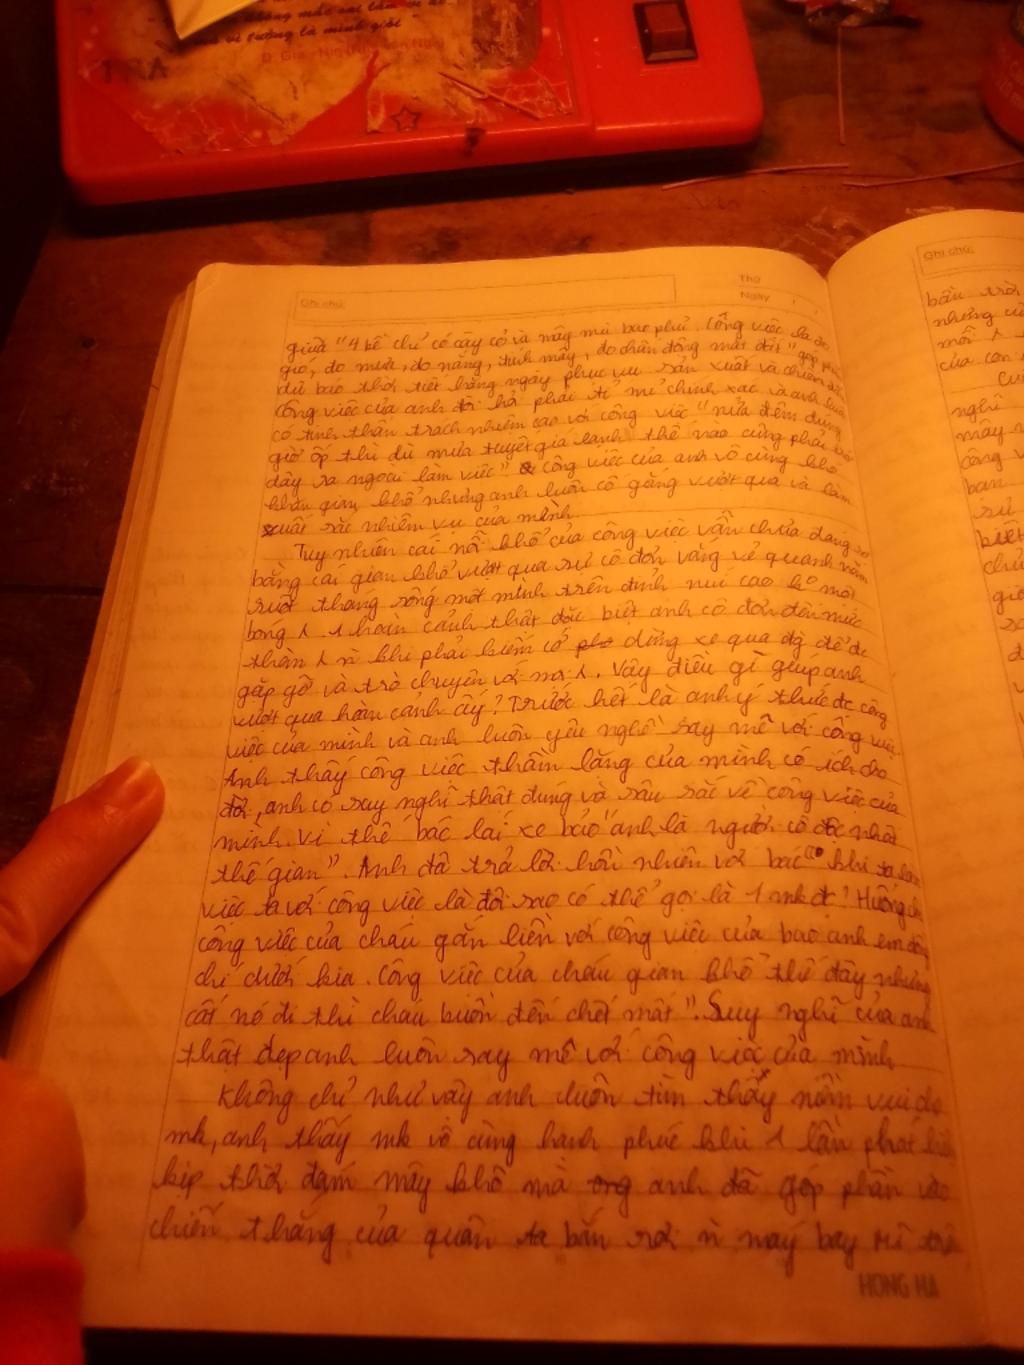 không mắc sai lầm vì
vì tưởng là mình giỏi
Ghi chú:
Thứ
Ngày
Ghi chú:
giữa "4 bề chỉ có cây cỏ và mây mù bao phủ. Công việc là đo
gió, đo mưa, đo nắng, tính mây, đo chấn động mặt đất" góp
dự báo thời tiết hằng ngày phục vụ sản xuất và chiến đấu
Công việc của anh đòi hỏi phải tỉ mỉ chính xác và anh luôn
có tinh thần trách nhiệm cao với công việc "nửa đêm đúng
giờ ốp thì dù mưa tuyết giá lạnh thế nào cũng phải trở
dậy ra ngoài làm việc" công việc của anh vô cùng khó
khăn gian khổ nhưng anh luôn cố gắng vượt qua và làm
xuất sắc nhiệm vụ của mình.
Tuy nhiên cái nỗi khổ của công việc vẫn chưa đáng sợ
bằng cái gian khổ vượt qua sự cô đơn vắng vẻ quanh năm
suốt tháng sống một mình trên đỉnh núi cao ko một
bóng 1 hoàn cảnh thật đặc biệt anh cô đơn đến mức
thèm khi phải kiếm cớ dừng xe qua đg để đc
gặp gỡ và trò chuyện với mọi. Vậy điều gì giúp anh
vượt qua hoàn cảnh ấy? Trước hết là anh ý thức đc công
việc của mình và anh luôn yêu nghề say mê với công việc
Anh thấy công việc thầm lặng của mình có ích cho
đời, anh có suy nghĩ thật đúng và sâu sắc về công việc của
mình. Vì thế bác lái xe bảo "anh là người cô độc nhất
thế gian". Anh đã trả lời hồn nhiên với bác "khi ta làm
việc ta với công việc là đôi sao có thể gọi là 1 mk đc? Huống chi
công việc của cháu gắn liền với công việc của bao anh em đồng
chí dưới kia. Công việc của cháu gian khổ thế đấy nhưng
cất nó đi thì cháu buồn đến chết mất". Suy nghĩ của anh
thật đẹp anh luôn say mê với công việc của mình
Không chỉ như vậy anh luôn tìm thấy niềm vui cho
mk, anh thấy mk vô cùng hạnh phúc khi 1 lần phát hiện
kịp thời đám mây khô mà anh đã góp phần vào
chiến thắng của quân ta bắn rơi n máy bay Mĩ trên
HONG HA
bầu trời
những
mỗi
của con
nghĩ
mây
công v
bạn
sự
biết